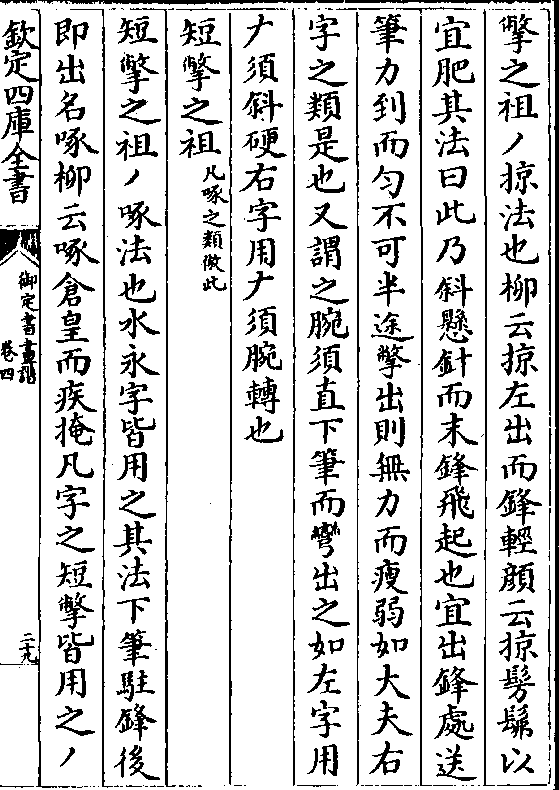 撆之祖丿掠法也柳云掠左出而鋒輕顔云掠髣髴以
宜肥其法曰此乃斜懸針而末鋒飛起也宜出鋒處送
筆力到而匀不可半途撆出則無力而瘦弱如大夫右
字之類是也又謂之腕須直下筆而彎出之如左字用
𠂇須斜硬右字用𠂇須腕轉也
短撆之祖凡啄之類倣此
短撆之祖丿啄法也水永字皆用之其法下筆駐鋒後
即出名啄柳云啄倉皇而疾掩凡字之短撆皆用之丿
欽定四庫全書
御定書畫譜
卷四
二十九